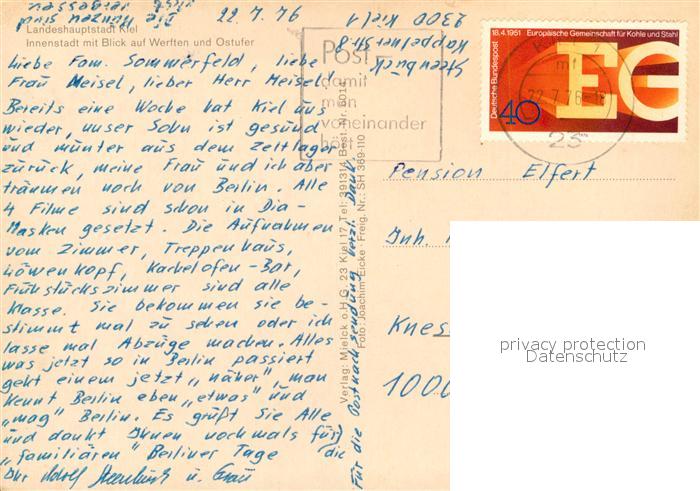 22.7.76
Landeshauptstadt Kiel
Innenstadt mit Blick auf Werften und Ostufer
Liebe Fam. Sommerfeld, liebe
Frau Meisel, lieber Herr Meisel!
Bereits eine Woche hat Kiel uns
wieder, unser Sohn ist gesund
und munter aus dem Zeltlager
zurück, meine Frau und ich aber
träumen noch von Berlin. Alle
4 Filme sind schon in Dia-
Masken gesetzt. Die Aufnahmen
vom Zimmer, Treppenhaus,
Löwenkopf, Kachelofen-Bar,
Frühstückszimmer sind alle
Klasse. Sie bekommen sie be-
stimmt mal zu sehen oder ich
lasse mal Abzüge machen. Alles
was jetzt so in Berlin passiert
geht einem jetzt „näher", man
kennt Berlin eben „etwas" und
„mag" Berlin. Es grüßt Sie Alle
und dankt Ihnen nochmals für
„familiären" Berliner Tage die
Ihr Adolf Steenbuck u. Frau
Für die Postnachsendung herzl. Dank.
Steenbuck
Kappelner Str. 8
2300 Kiel 1
Verlag: Mielck o.H.G. 23 Kiel 17 Tel: 39131 Best. Nr. 6014
Foto: Joachim Eicke Freig. Nr.: SH 369-110
Post
damit
man
voneinander
hört
18.4.1951 Europäische Gemeinschaft für Kohle und Stahl
Deutsche Bundespost
EG
40
22.7.76-18
Pension Elfert
Inh.
Knes
1000
privacy protection
Datenschutz